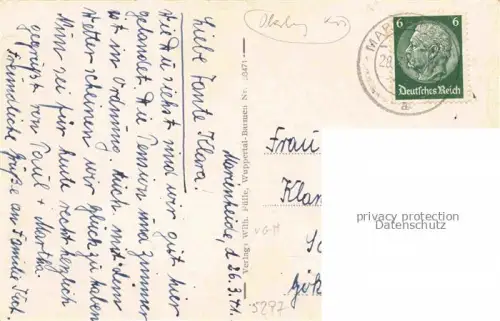 Marienheide, d. 26.3.41.
Liebe Tante Klara!
Wie Du siehst sind wir gut hier
gelandet. Die Pension und Zimmer
ist in Ordnung. Auch mit dem
Wetter scheinen wir Glück zu haben
Nun sei für heute recht herzlich
gegrüßt von Paul + Martha
Freundliche Grüße an Familie
Verlag: Wilh. Fülle, Wuppertal-Barmen Nr.
Oberberg
MAR
6 6
Deutsches Reich
a
Frau
Klar
privacy protection
Datenschutz
VGM
5297